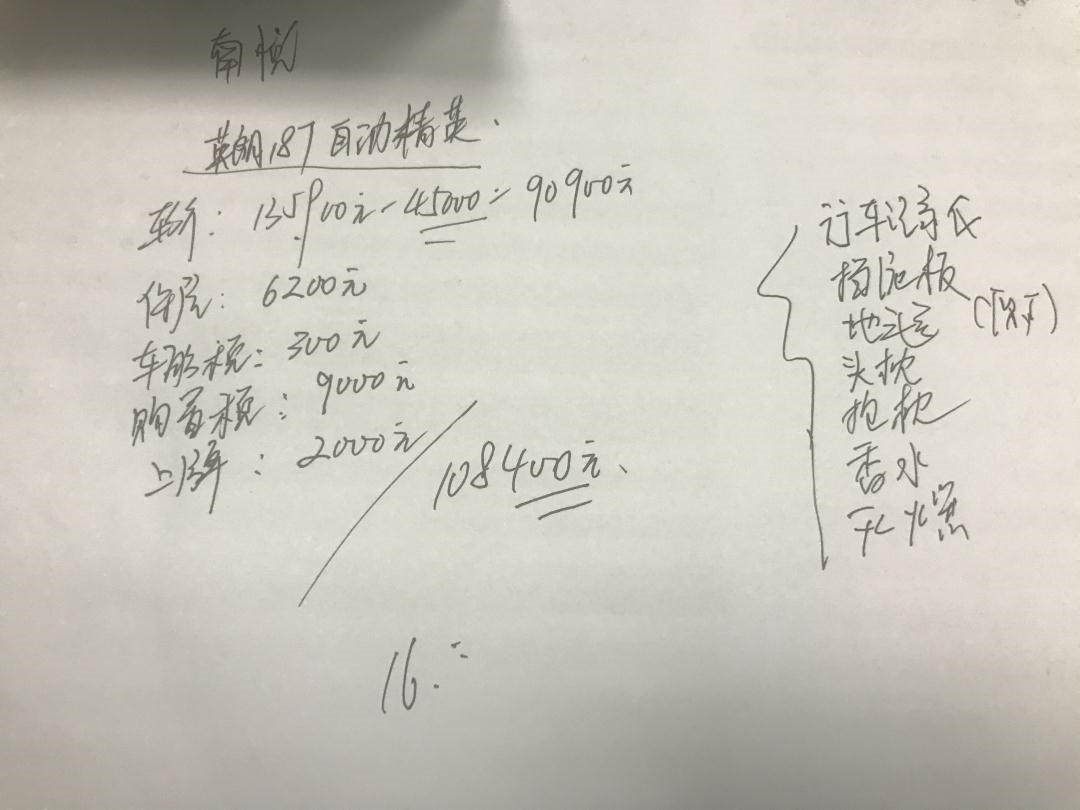 南悦
英朗18T自动精英.
车价: 135900元-45000=90900元
保险: 6200元
车船税: 300元
购置税: 9000元
上牌: 2000元
108400元
行车记录仪
挡泥板
地毯
头枕
抱枕
香水
灭火器
16.